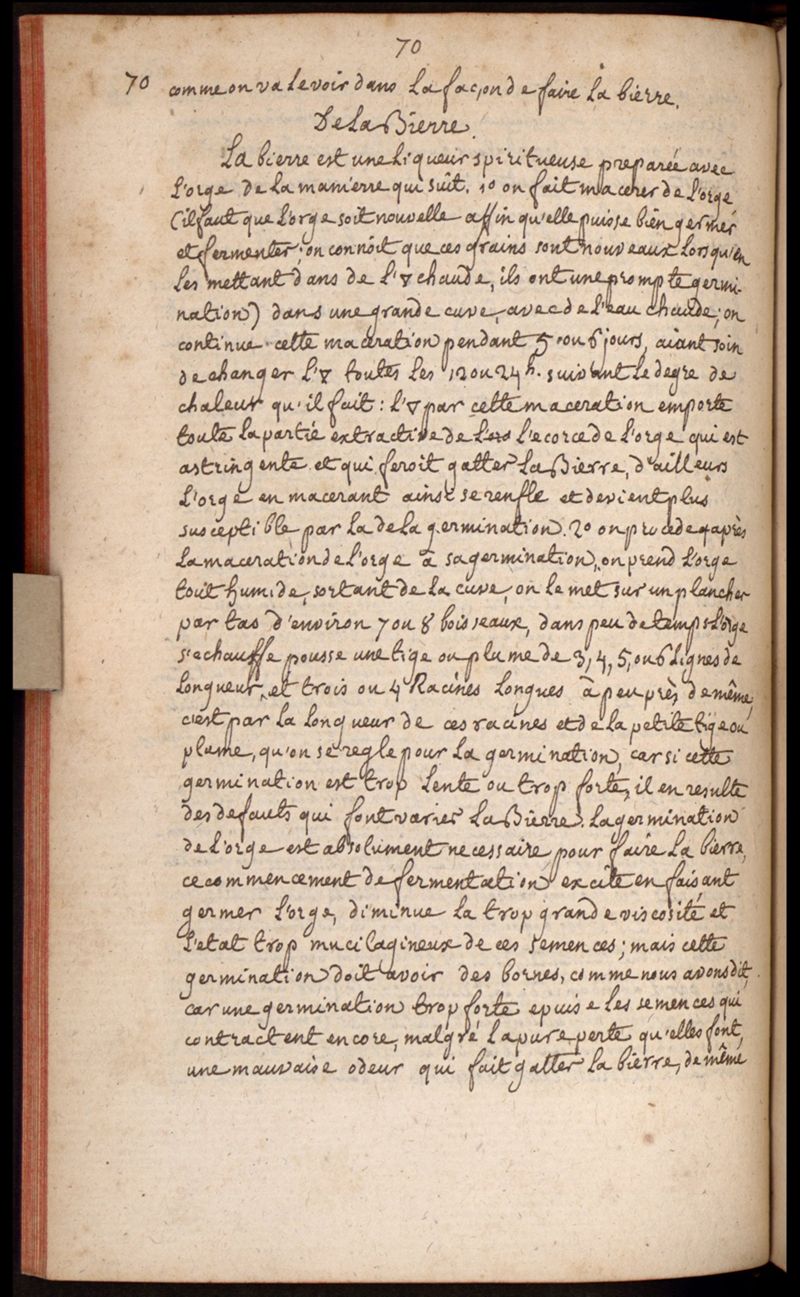 70
70 comme on va le voir dans la façon de faire la bierre.
De la Bierre.
La bierre est une liqueur spiritueuse preparée avec
l'orge de la manierre qui suit. 1º on fait macerer de l'orge
(il faut que l'orge soit nouvelle affin qu'elle puisse bien germer
et fermenter; on connoit que ces grains sont nouveaux lorsqu'en
les mettant dans de l'🜄 chaude, ils ont une prompte germi-
nation) dans une grande cuve, avec de l'eau chaude; on
continue cette maceration pendant 5 ou 6 jours, aiant soin
de changer l'🜄 toutes les 12 ou 24 h. suivant le degre de
chaleur qu'il fait: l'🜄 par cette maceration emporte
toute la partie extractive de l'ecorce de l'orge qui est
astringente et qui feroit gatter la Bierre, d'ailleurs
l'orge en macerant ainsi se renfle et devient plus
susceptible par la de la germination. 2º on procede après
la maceration de l'orge à sa germination, on prend l'orge
tout humide, sortant de la cuve, on le met sur un plancher
par tas d'environ 7 ou 8 boisseaux, dans peu de temps l'orge
s'echauffe pousse une tige ou plume de 3, 4, 5, ou 6 lignes de
longueur, et trois ou 4 Racines longues à peu près de même,
c'est par la longueur de ces racines et de la petite tige ou
plume, qu'on se regle pour la germination, car si cette
germination est trop lente ou trop forte, il en resulte
des defauts qui font varier la Bierre. la germination
de l'orge est absolument necessaire pour faire la bierre,
ce commencement de fermentation excite en faisant
germer l'orge, diminue la trop grande viscosité et
l'etat trop mucilagineux de ces semences; mais cette
germination doit avoir des bornes, comme nous avons dit,
car une germination trop forte epuise les semences qui
contractent encore, malgré la pure perte qu'elles font,
une mauvaise odeur qui fait gatter la bierre, de même